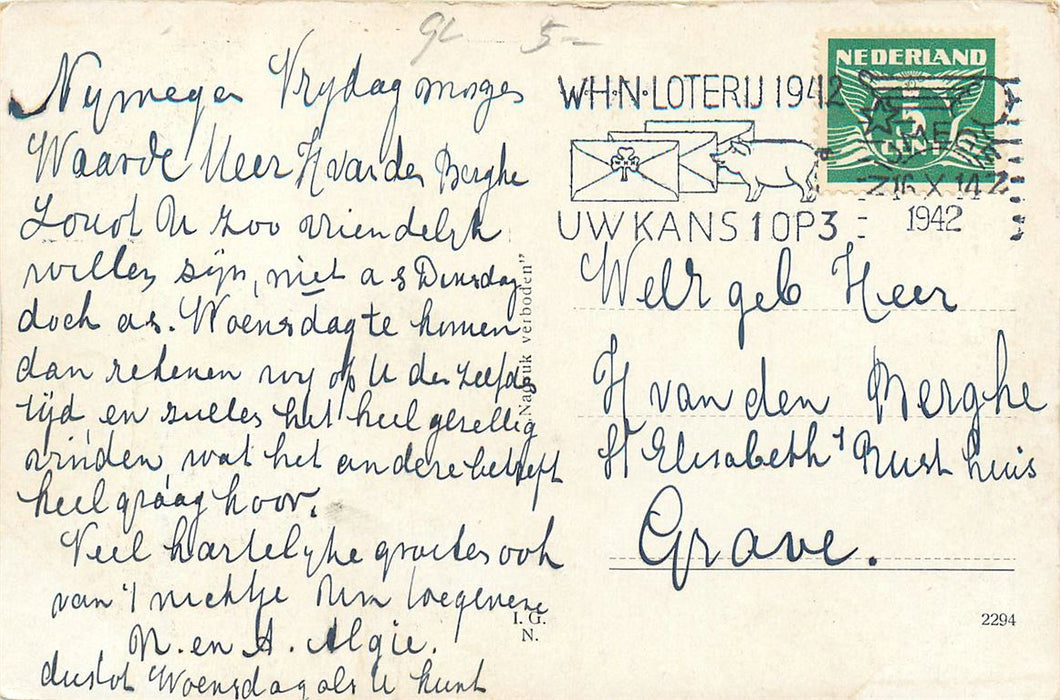 9L 5-
Nÿmegen Vrÿdag morgen
Waarde Heer H van den Berghe
Zoudt U zoo vriendelÿk
willen zÿn, niet a s Dinsdag
doch as. Woensdag te komen
dan rekenen wÿ op U de zelfde
tÿd en zullen het heel gezellig
vinden, wat het andere betreft
heel graag hoor.
Veel hartelÿke groeten ook
van 't nichtje Uw toegenegene
M. en A. Algie.
dus tot Woensdag als U kunt
"Nadruk verboden"
I. G.
N.
W·H·N·LOTERIJ 1942
UW KANS 1 OP 3
NEDERLAND
5
CENT
16 X 14
1942
WelE geb Heer
H van den Berghe
St Elisabeth's Rust huis
Grave.
2294